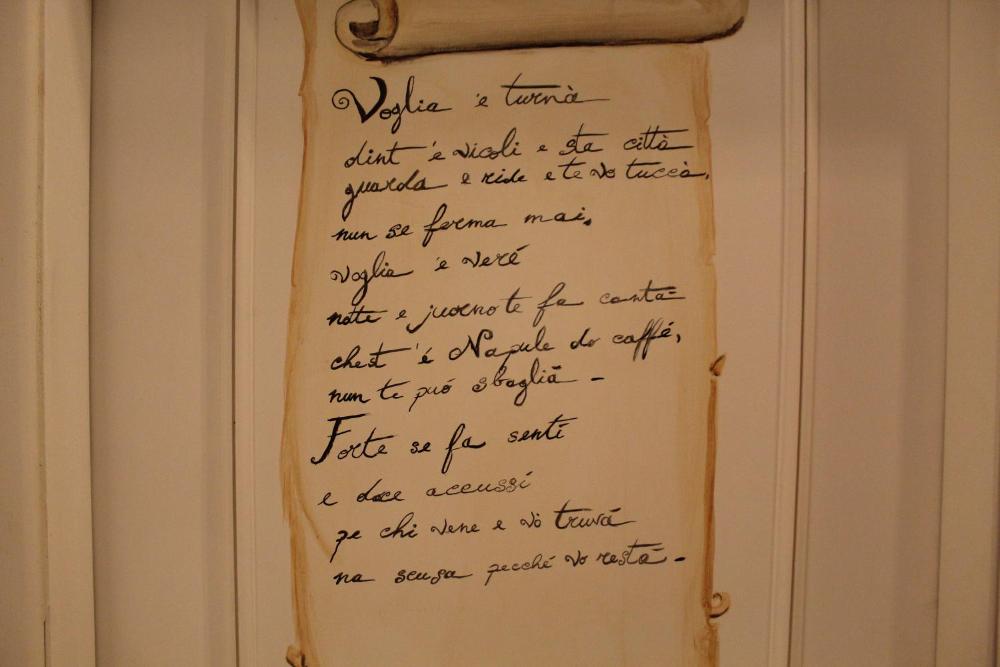 Voglia 'e turnà
dint 'e vicoli e sta città
guarda e ride e te vo tuccà,
nun se ferma mai,
voglia 'e veré
notte e juorno te fa cantà
chest 'é Napule do caffé,
nun te puó sbaglià -
Forte se fa sentí
e doce accussí
pe chi vene e vò truvá
na scusa pecché vo restá -